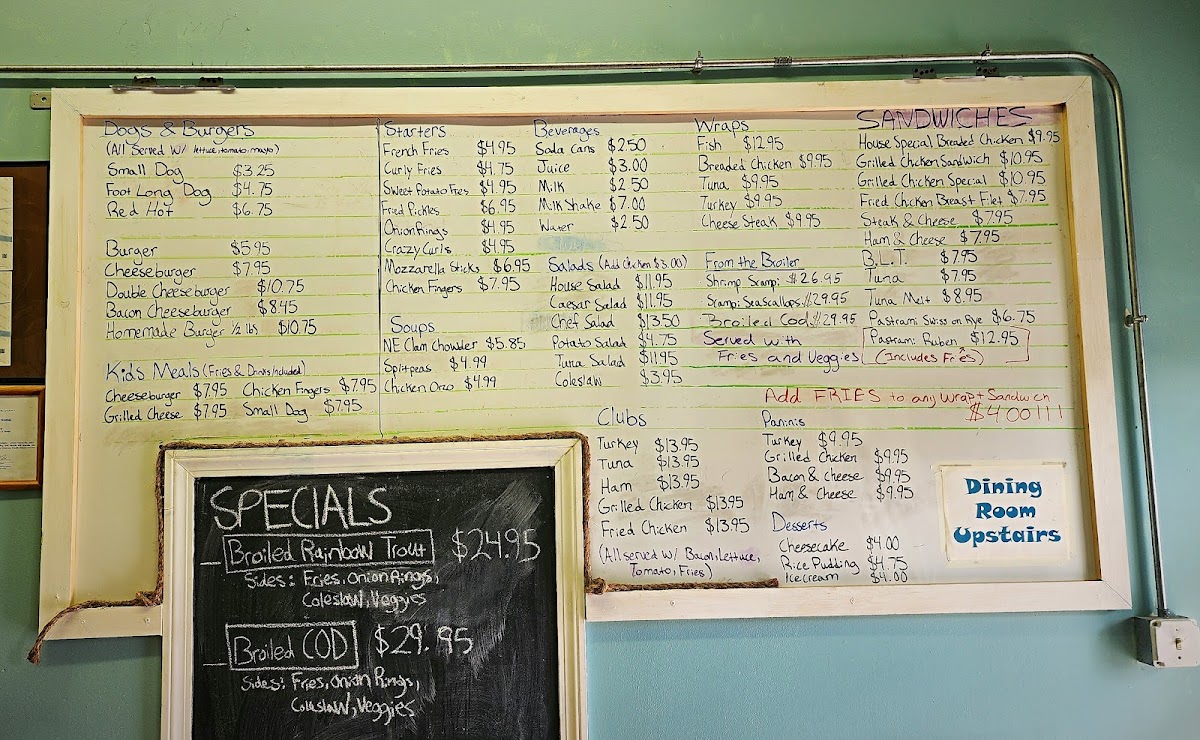 Dogs & Burgers
(All Served W/ lettuce, tomato, mayo)
Small Dog $3.25
Foot Long Dog $4.75
Red Hot $6.75
Burger $5.95
Cheeseburger $7.95
Double Cheeseburger $10.75
Bacon Cheeseburger $8.45
Homemade Burger 1/2 lbs $10.75
Kids Meals (Fries & Drinks Included)
Cheeseburger $7.95 Chicken Fingers $7.95
Grilled Cheese $7.95 Small Dog $7.95
Starters
French Fries $4.95
Curly Fries $4.75
Sweet Potato Fries $4.95
Fried Pickles $6.95
Onion Rings $4.95
Crazy Curls $4.95
Mozzarella Sticks $6.95
Chicken Fingers $7.95
Soups
NE Clam Chowder $5.85
Splitpeas $4.99
Chicken Orzo $4.99
Beverages
Soda Cans $2.50
Juice $3.00
Milk $2.50
Milk Shake $7.00
Water $2.50
Salads (Add Chicken $3.00)
House Salad $11.95
Caesar Salad $11.95
Chef Salad $13.50
Potato Salad $4.75
Tuna Salad $11.95
Coleslaw $3.95
Wraps
Fish $12.95
Breaded Chicken $9.95
Tuna $9.95
Turkey $9.95
Cheese Steak $9.95
From the Broiler
Shrimp Scampi $26.95
Scampi Sea Scallops $29.95
Broiled Cod $29.95
Served with
Fries and Veggies
SANDWICHES
House Special Breaded Chicken $9.95
Grilled Chicken Sandwich $10.95
Grilled Chicken Special $10.95
Fried Chicken Breast Filet $7.95
Steak & Cheese $7.95
Ham & Cheese $7.95
B.L.T. $7.95
Tuna $7.95
Tuna Melt $8.95
Pastrami Swiss on Rye $6.75
Pastrami Ruben $12.95
(Includes Fries)
Add FRIES to any Wrap + Sandwich
$4.00!!!
Clubs
Turkey $13.95
Tuna $13.95
Ham $13.95
Grilled Chicken $13.95
Fried Chicken $13.95
(All served W/ Bacon, Lettuce,
Tomato, Fries)
Paninis
Turkey $9.95
Grilled Chicken $9.95
Bacon & Cheese $9.95
Ham & Cheese $9.95
Desserts
Cheesecake $4.00
Rice Pudding $4.75
Ice Cream $4.00
Dining
Room
Upstairs
SPECIALS
Broiled Rainbow Trout $24.95
Sides: Fries, Onion Rings,
Coleslaw, Veggies
Broiled COD $29.95
Sides: Fries, Onion Rings,
Coleslaw, Veggies